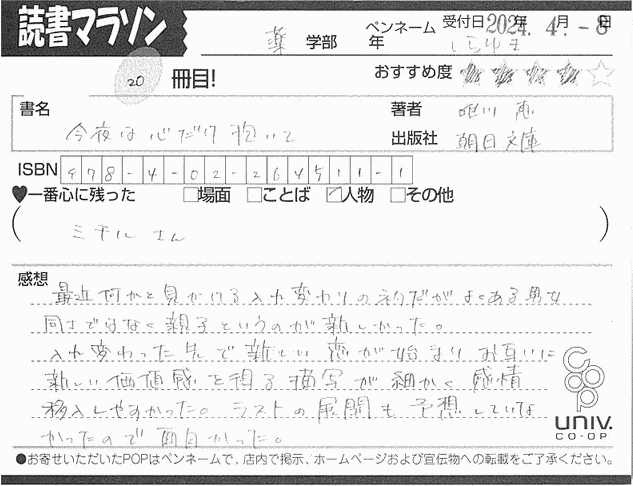 読書マラソン
薬 学部 年
ペンネーム しらゆき
受付日 2024年.4月.-8日
20 冊目!
おすすめ度 ★★★★☆
書名 今夜は心だけ抱いて
著者 唯川 恵
出版社 朝日文庫
ISBN 978-4-02-264511-1
♥一番心に残った □場面 □ことば ☑人物 □その他
( ミチルさん )
感想
最近何かと見かける入れ変わりの ネタだが よくある男女
同士ではなく親子というのが新しかった。
入れ変わった先で新しい恋が始まり お互いに
新しい価値感を得る描写が細かく感情
移入しやすかった。ラストの展開も予想していな
かったので面白かった。
UNIV.
CO-OP
●お寄せいただいたPOPはペンネームで、店内で掲示、ホームページおよび宣伝物への転載をご了承ください。